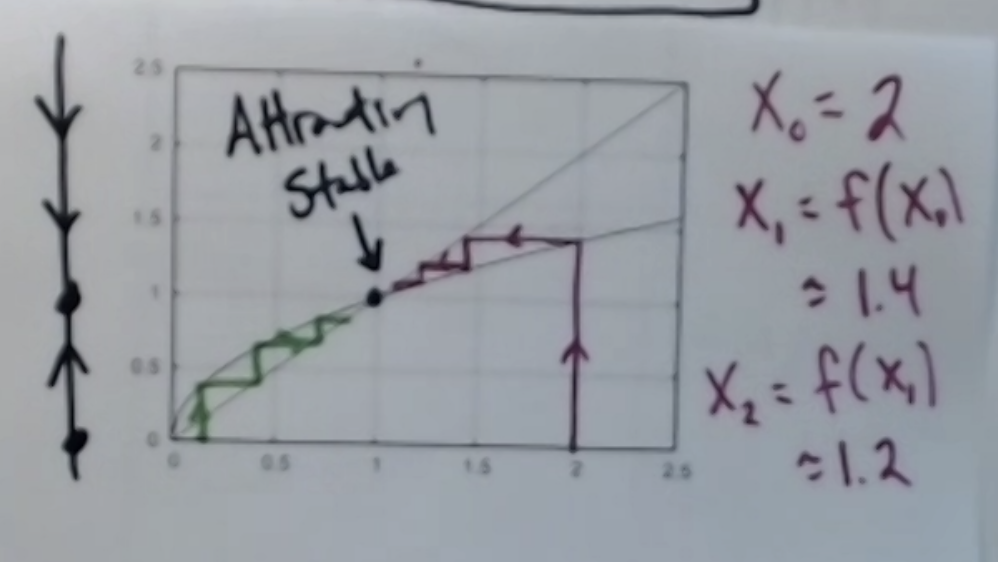 2.5
2
1.5
1
0.5
0
0
0.5
1
1.5
2
2.5
Stable
X₀ = 2
X₁ = f(X₀)
≈ 1.4
X₂ = f(X₁)
≈ 1.2